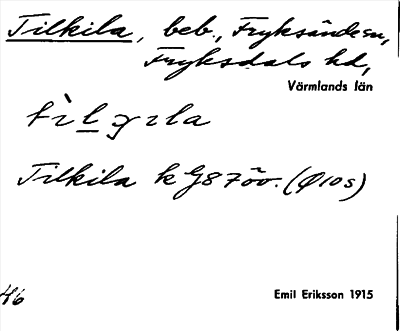 Tilkila, beb., Fryksänden,
Fryksdals hd,
Värmlands län
Tilkila k G87öv. (Ø10s)
46
Emil Eriksson 1915